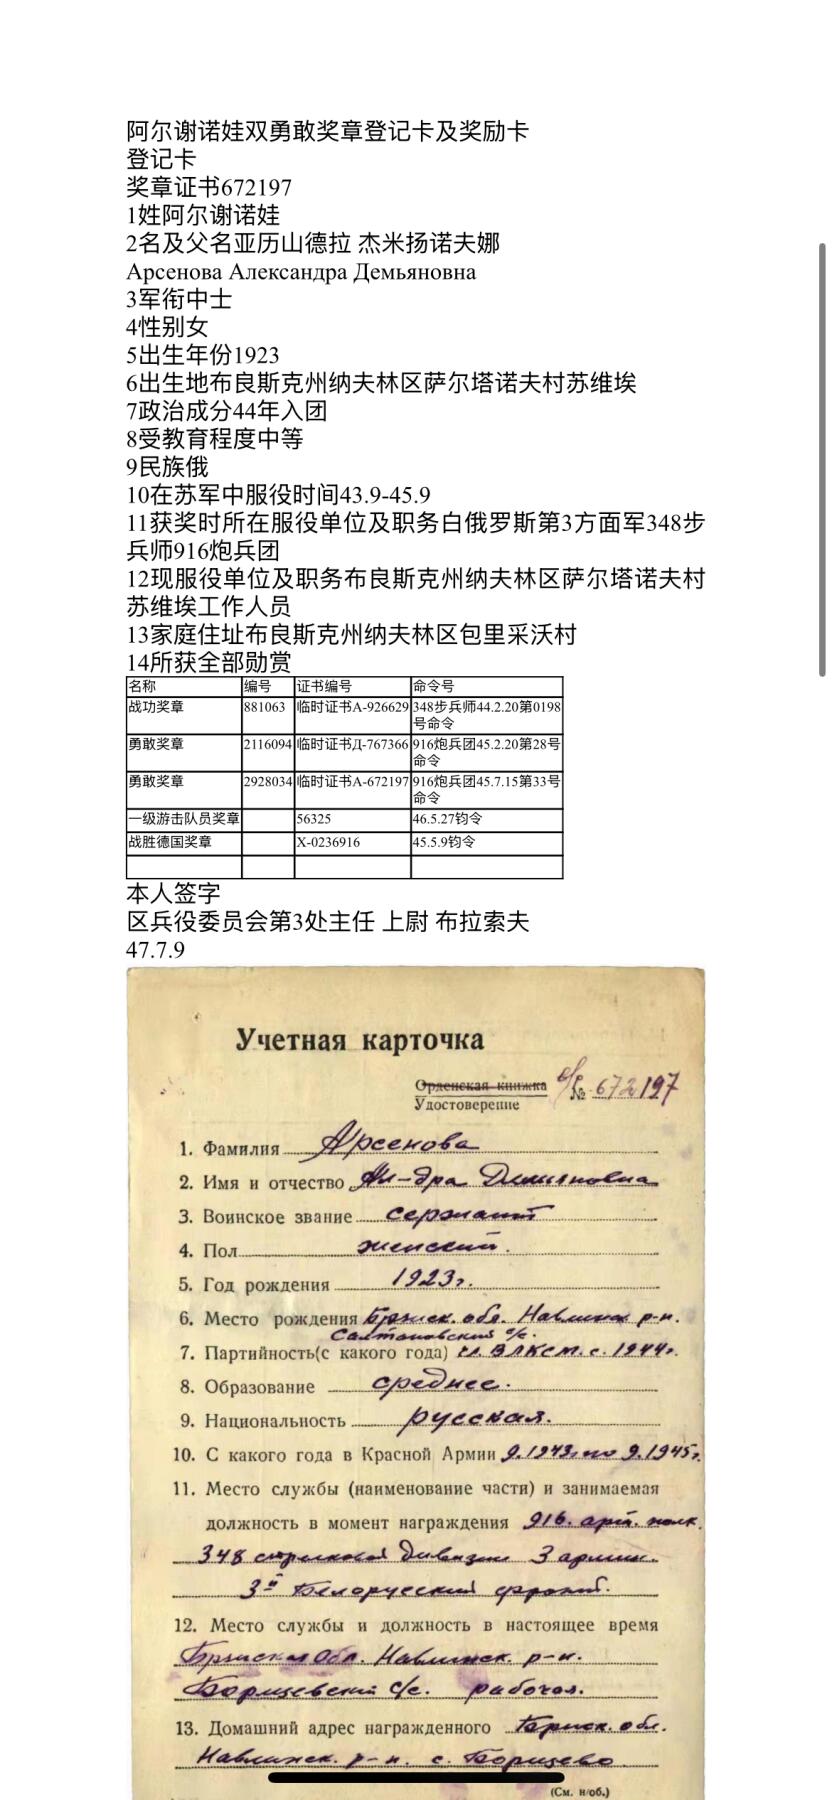 阿尔谢诺娃双勇敢奖章登记卡及奖励卡
登记卡
奖章证书672197
1姓阿尔谢诺娃
2名及父名亚历山德拉 杰米扬诺夫娜
Арсенова Александра Демьяновна
3军衔中士
4性别女
5出生年份1923
6出生地布良斯克州纳夫林区萨尔塔诺夫村苏维埃
7政治成分44年入团
8受教育程度中等
9民族俄
10在苏军中服役时间43.9-45.9
11获奖时所在服役单位及职务白俄罗斯第3方面军348步
兵师916炮兵团
12现服役单位及职务布良斯克州纳夫林区萨尔塔诺夫村
苏维埃工作人员
13家庭住址布良斯克州纳夫林区包里采沃村
14所获全部勋赏
名称 编号 证书编号 命令号
战功奖章 881063 临时证书А-926629 348步兵师44.2.20第0198
号命令
勇敢奖章 2116094 临时证书Д-767366 916炮兵团45.2.20第28号
命令
勇敢奖章 2928034 临时证书А-672197 916炮兵团45.7.15第33号
命令
一级游击队员奖章 56325 46.5.27钧令
战胜德国奖章 Х-0236916 45.5.9钧令
本人签字
区兵役委员会第3处主任 上尉 布拉索夫
47.7.9
Учетная карточка
Орденская книжка
Удостоверение б/с № 672197
1. Фамилия Арсенова
2. Имя и отчество Ал-дра Демьяновна
3. Воинское звание сержант
4. Пол женский.
5. Год рождения 1923г.
6. Место рождения Брянск. обл. Навлинск р-н.
Салтановский с/с.
7. Партийность(с какого года) чл. ВЛКСМ. с. 1944г.
8. Образование среднее.
9. Национальность русская.
10. С какого года в Красной Армии 9.1943г по 9.1945г.
11. Место службы (наименование части) и занимаемая
должность в момент награждения 916. арт. полк.
348 стрелковой дивизии 3 армии.
3й Белорусский фронт.
12. Место службы и должность в настоящее время
Брянская Обл. Навлинск. р-н.
Борщевский с/с. рабочая.
13. Домашний адрес награжденного Брянск. обл.
Навлинск. р-н. с. Борщево
(См. н/об.)